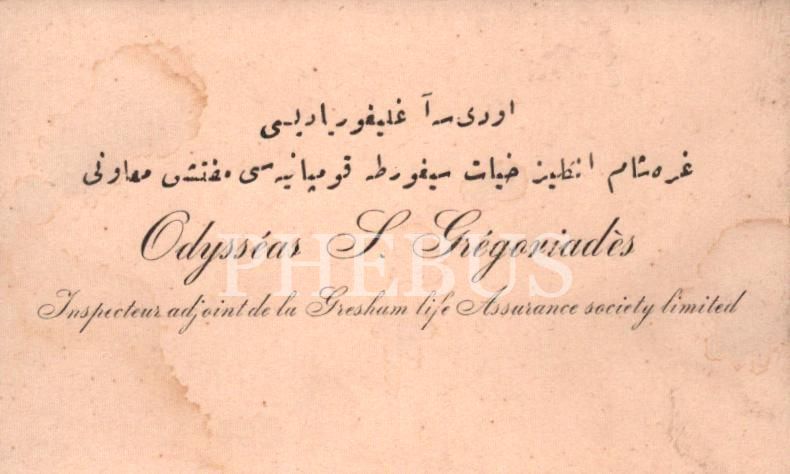 اودى سه آ غليغوريادىس
غره شام انكليز حيات سيغورطه قومپانيه سى مفتش معاونى
Odysséas S. Grégoriadès
PHEBUS
Inspecteur adjoint de la Gresham life Assurance society limited